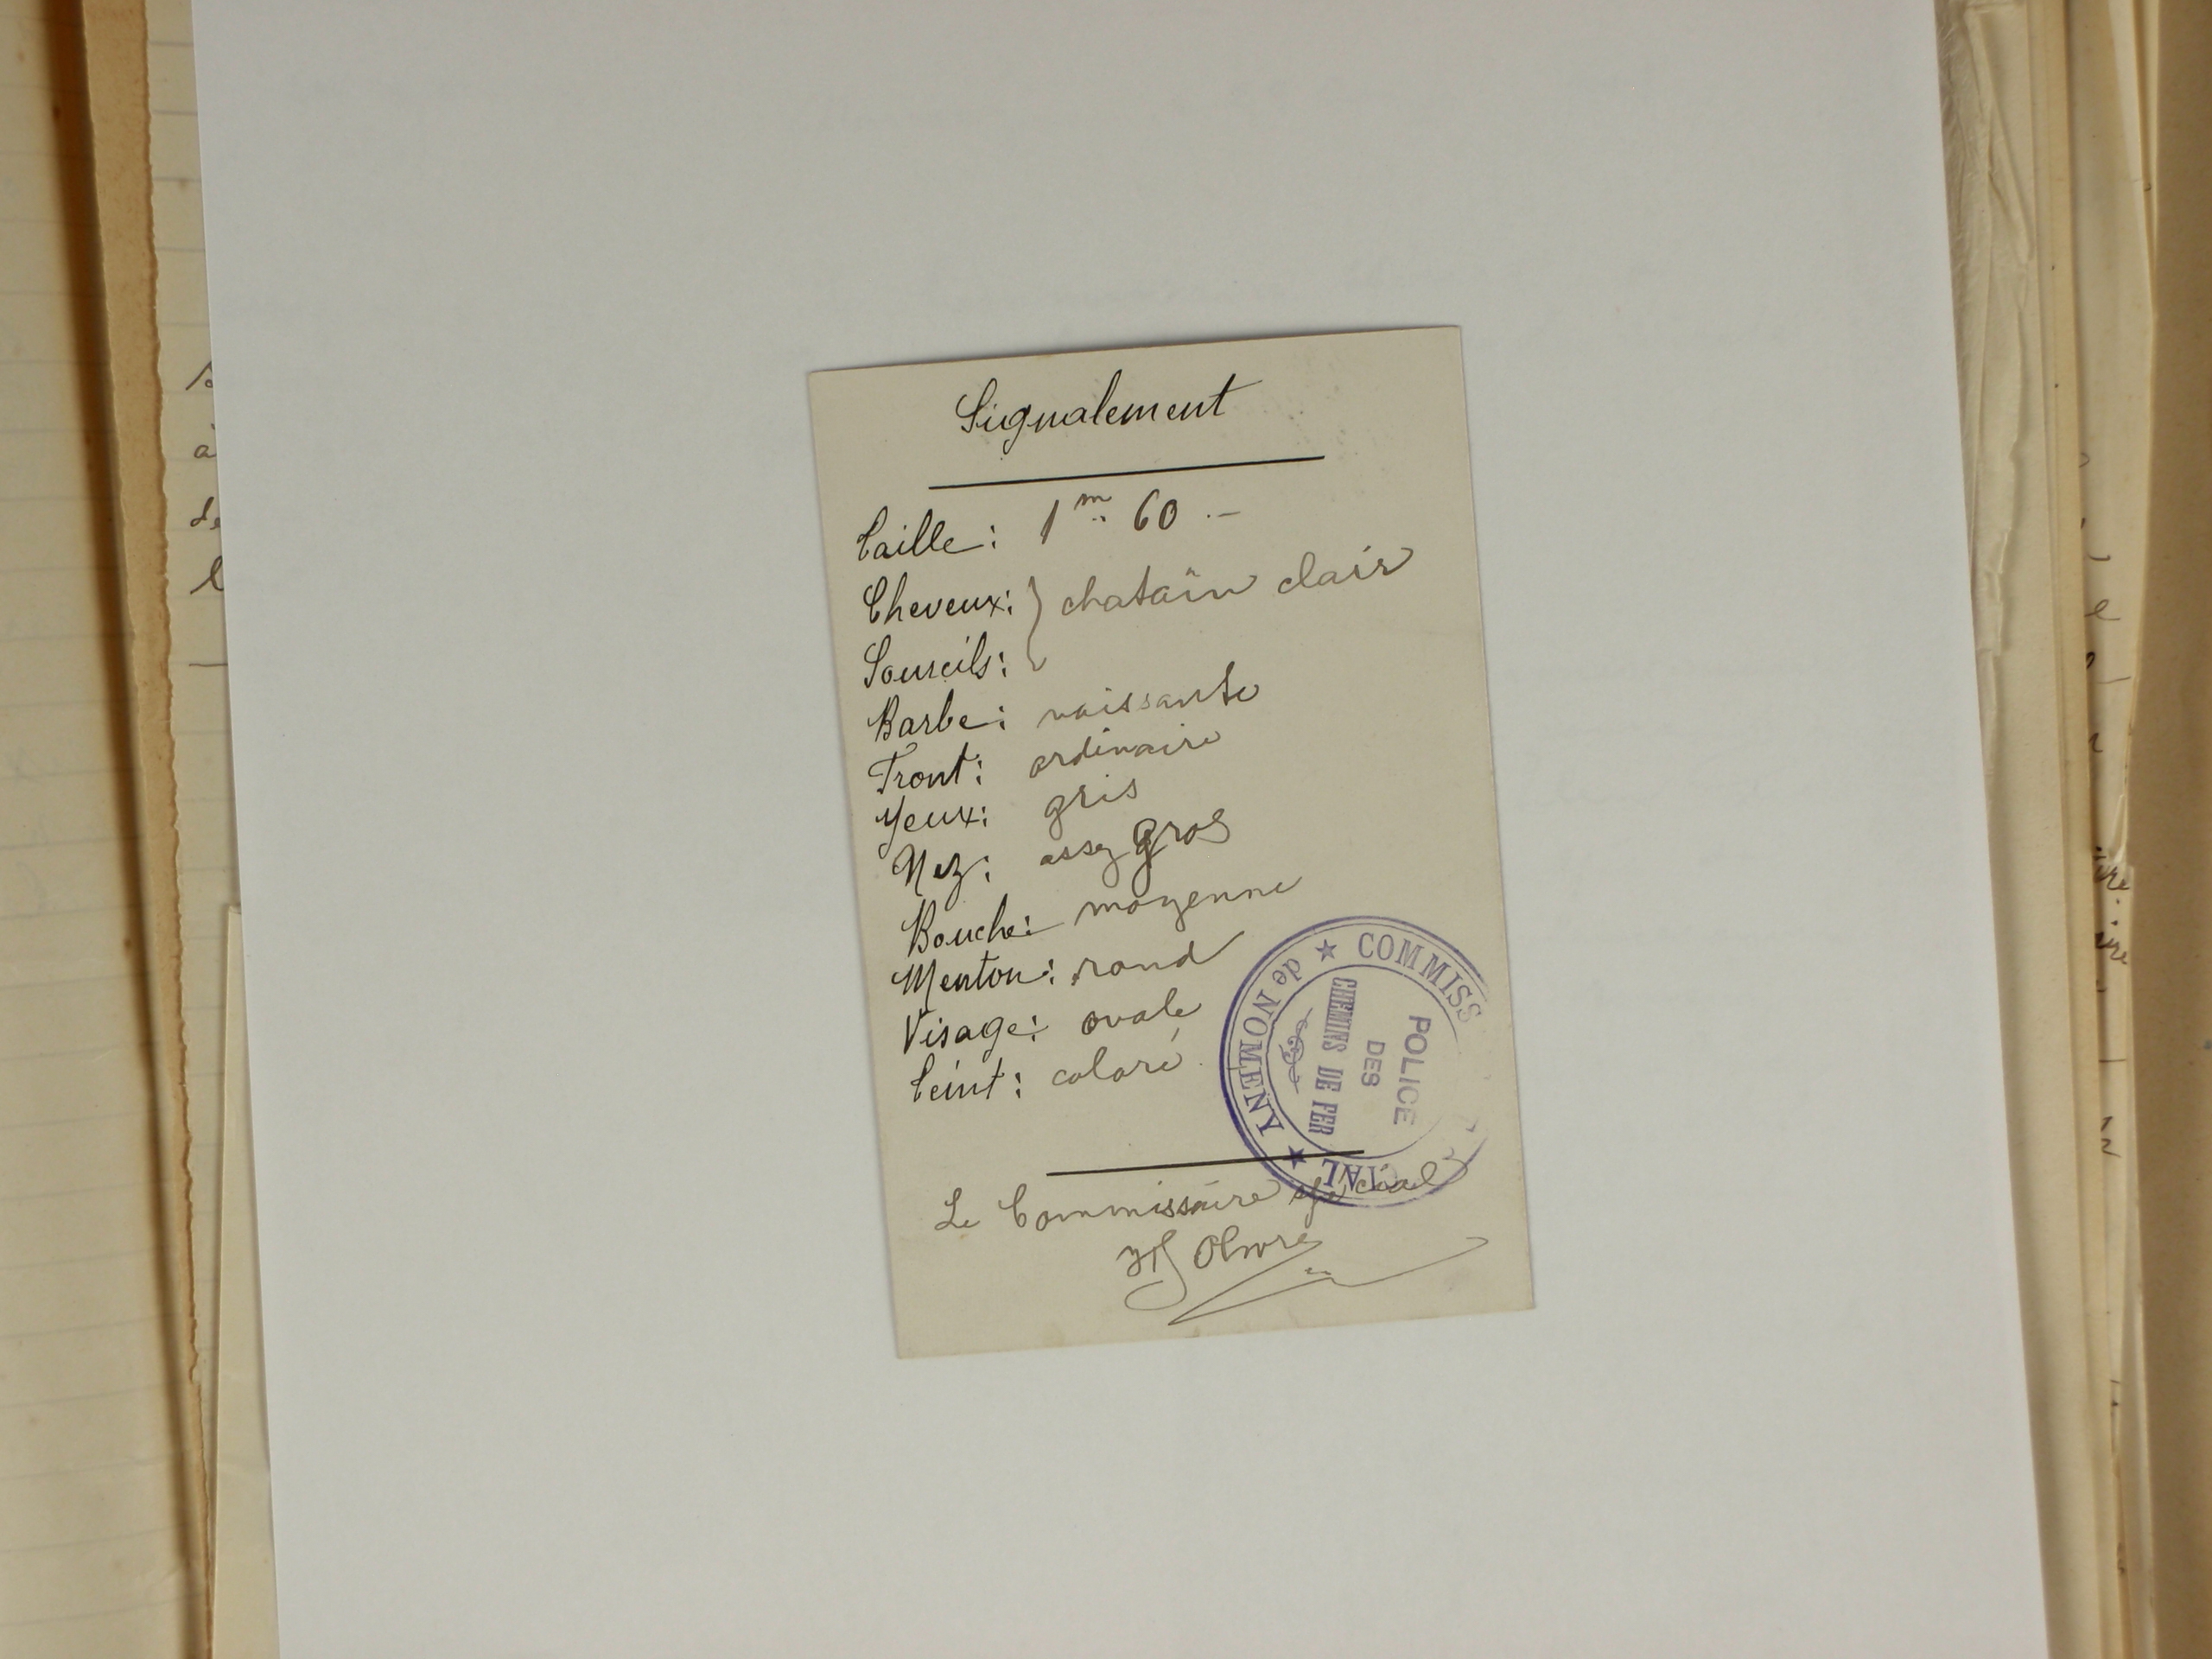 Signalement
Taille: 1 m. 60 . -
Cheveux: } chatain clair
Sourcils:
Barbe: naissante
Front: ordinaire
Yeux: gris
Nez: assez gros
Bouche: moyenne
Menton: rond
Visage: ovale
Teint: coloré
Le Commissaire spécial
COMMISS
CIAL
★ de NOMENY ★
POLICE
DES
CHEMINS DE FER
à